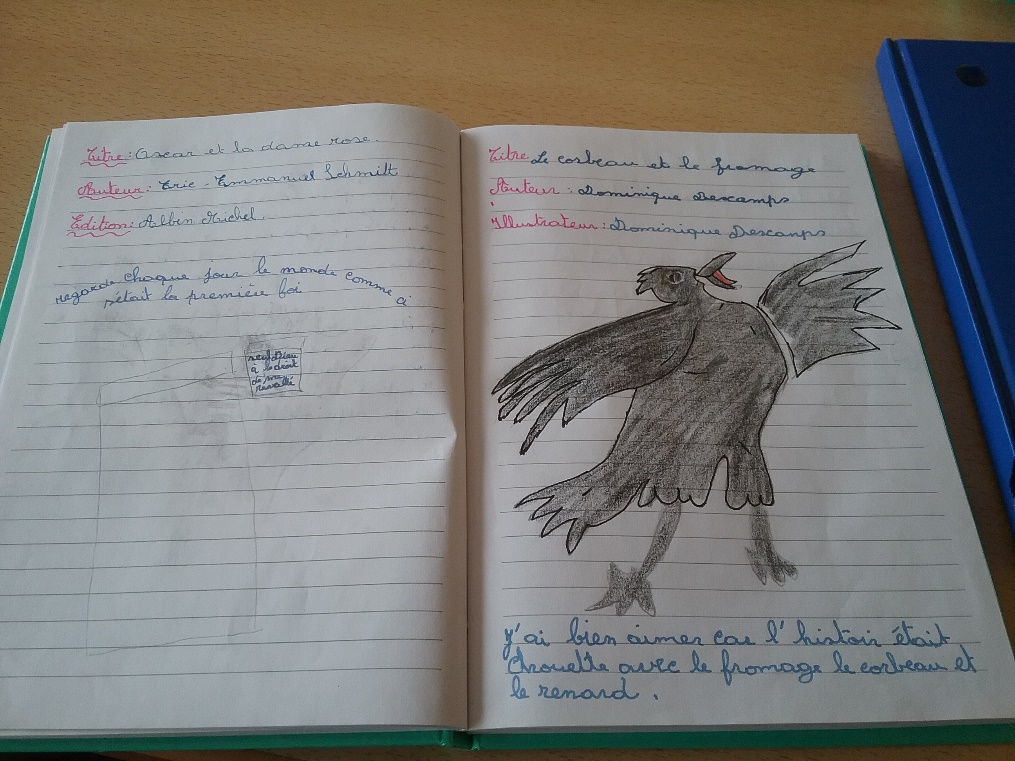 Titre: Oscar et la dame rose.
Auteur: Eric-Emmanuel Schmitt
Edition: Albin Michel.
regarde chaque jour le monde comme ci
s'était la première foi
seul Dieu
à le droit
de me
reveillé
Titre Le corbeau et le fromage
Auteur: Dominique Descamps
Illustrateur: Dominique Descamps
j'ai bien aimer car l'histoir était
Chouette avec le fromage le corbeau et
le renard.